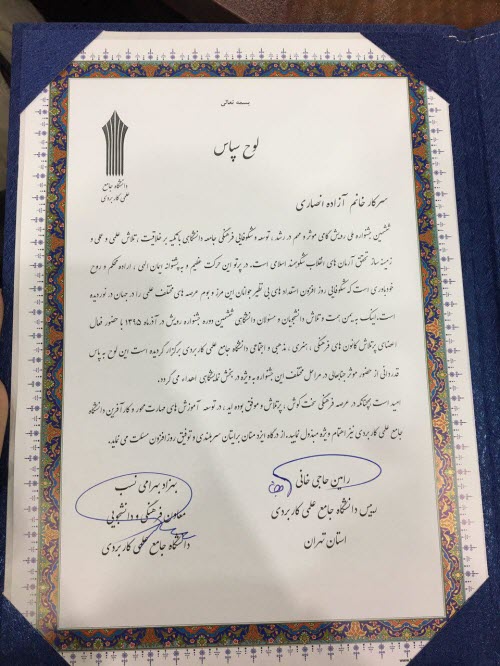 بسمه تعالی
لوح سپاس
دانشگاه جامع
علمی کاربردی
سرکار خانم آزاده انصاری
ششمین جشنواره ملی رویش گامی موثر و مهم در رشد، توسعه و شکوفایی فرهنگی جامعه دانشگاهی با تکیه بر خلاقیت، تلاش علمی و عملی و
زمینه ساز تحقق آرمان های انقلاب شکوهمند اسلامی است. در پرتو این حرکت عظیم و به پشتوانه ایمان الهی، اراده محکم و روح
خودباوری است که شکوفایی روز افزون استعداد های بی نظیر جوانان این مرز و بوم عرصه های مختلف علمی را در جهان در نوردیده
است. اینک به یمن همت و تلاش دانشجویان و مسئولان دانشگاهی ششمین دوره جشنواره رویش در آذرماه ۱۳۹۵ با حضور فعال
اعضای پرتلاش کانون های فرهنگی، هنری، مذهبی و اجتماعی دانشگاه جامع علمی کاربردی برگزار گردیده است این لوح به پاس
قدردانی از حضور موثر جنابعالی در مراحل مختلف این جشنواره به ویژه در بخش نمایشگاهی اهداء می گردد.
امید است همچنانکه در عرصه فرهنگی سخت کوش، پرتلاش و موفق بوده اید، در توسعه آموزش های مهارت محور و کار آفرین دانشگاه
جامع علمی کاربردی نیز اهتمام ویژه مبذول نمایید. از درگاه ایزد منان برایتان سربلندی و توفیق روز افزون مسئلت می نماید.
رامین حاجی خانی
رییس دانشگاه جامع علمی کاربردی
استان تهران
بهزاد بهرامی نسب
معاون فرهنگی و دانشجویی
دانشگاه جامع علمی کاربردی